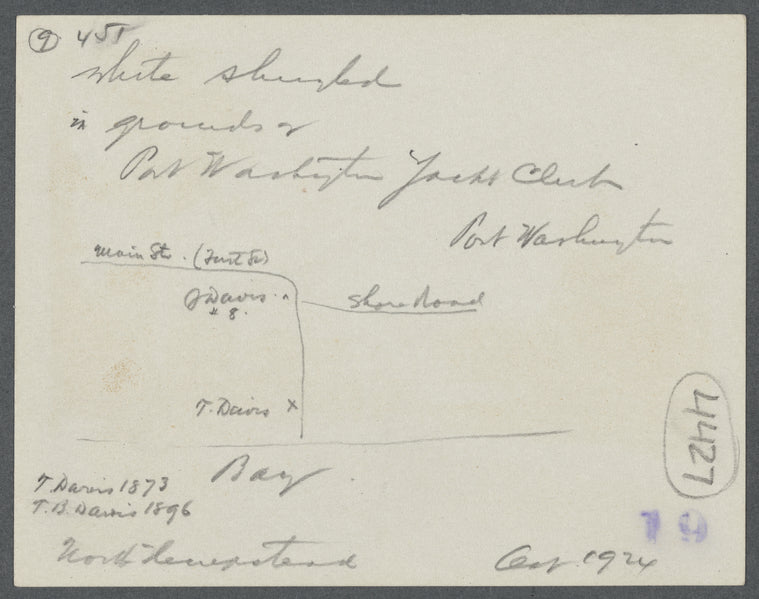 9 451
White shingled
in grounds of
Port Washington Yacht Club
Port Washington
Main St. (First St)
J Davis
* 8.
Shore Road
T. Davis x
Bay
T. Davis 1873
T. B. Davis 1896
North Hempstead
1924
4427
19